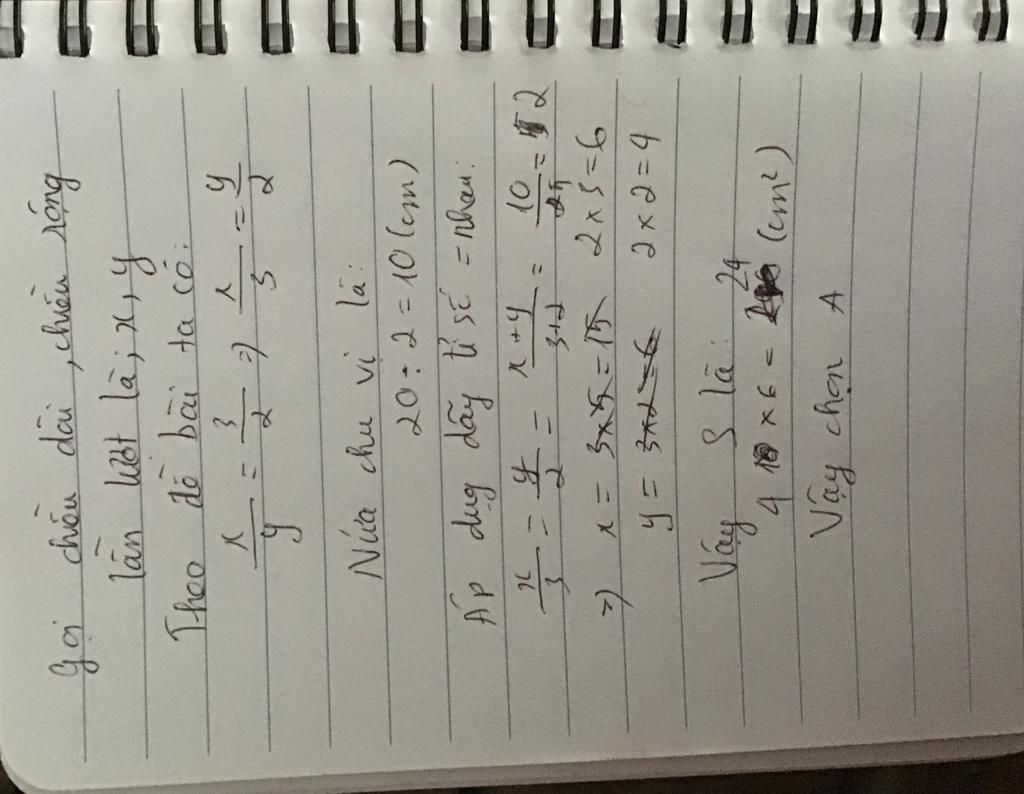 Gọi chiều dài, chiều rộng
lần lượt là; x, y
Theo đề bài ta có:
x/y = 3/2 => x/3 = y/2
Nửa chu vi là:
20 ÷ 2 = 10 (cm)
Áp dụng dãy tỉ số = nhau:
x/3 = y/2 = x+y/3+2 = 10/5 = 2
=> x = 3x5=15 2 x 3 = 6
y = 3x2=6 2 x 2 = 4
Vậy S là:
4 x 6 = 24 (cm²)
Vậy chọn A